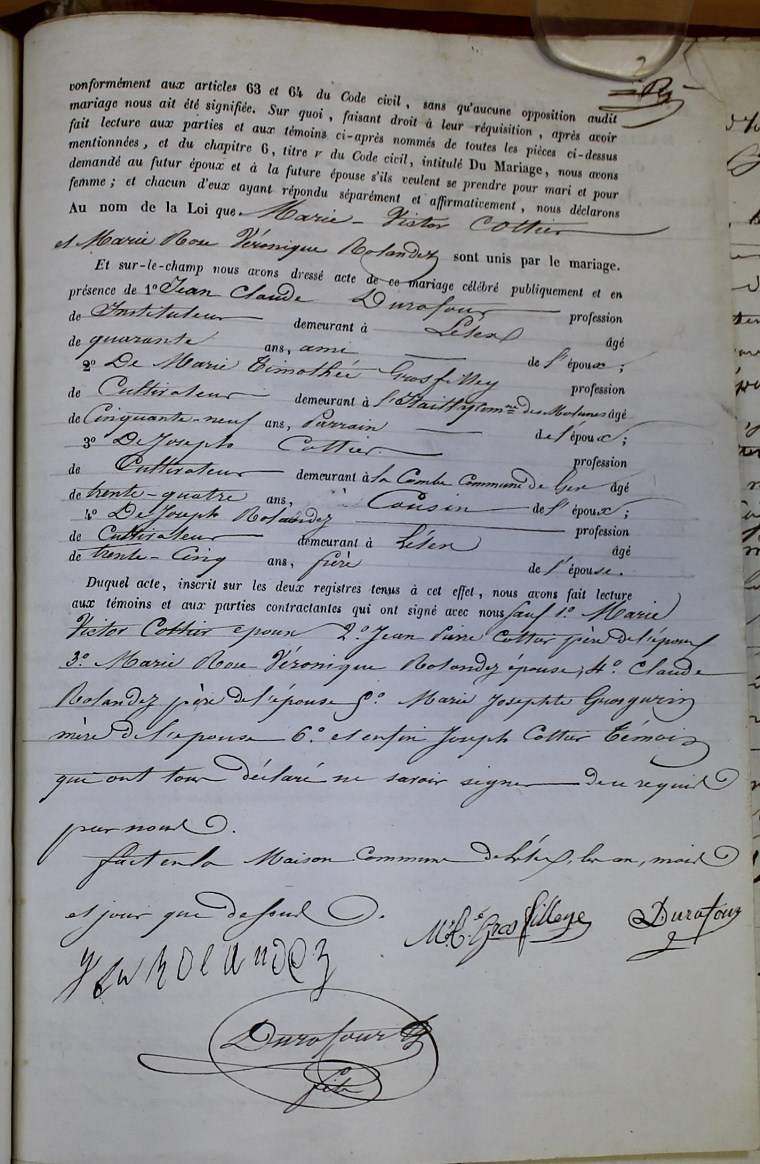 conformément aux articles 63 et 64 du Code civil, sans qu'aucune opposition audit
mariage nous ait été signifiée. Sur quoi, faisant droit à leur réquisition, après avoir
fait lecture aux parties et aux témoins ci-après nommés de toutes les pièces ci-dessus
mentionnées, et du chapitre 6, titre v du Code civil, intitulé Du Mariage, nous avons
demandé au futur époux et à la future épouse s'ils veulent se prendre pour mari et pour
femme; et chacun d'eux ayant répondu séparément et affirmativement, nous déclarons
Au nom de la Loi que Marie-Victor Cottier
et Marie Rose Véronique Rolandez sont unis par le mariage.
Et sur-le-champ nous avons dressé acte de ce mariage célébré publiquement et en
présence de 1º Jean Claude Durafour profession
de Instituteur demeurant à Lélex âgé
de quarante ans, ami de l'époux;
2º De Marie Timothée Grosfilley profession
de Cultivateur demeurant à comne des Molunes âgé
de Cinquante-neuf ans, Parrain de l'époux;
3º De Joseph Cottier profession
de Cultivateur demeurant à la Combe Commune de Gex âgé
de trente-quatre ans, Cousin de l'époux;
4º De Joseph Rolandez profession
de Cultivateur demeurant à Lélex âgé
de trente-Cinq ans, frère de l'épouse.
Duquel acte, inscrit sur les deux registres tenus à cet effet, nous avons fait lecture
aux témoins et aux parties contractantes qui ont signé avec nous sauf 1º Marie
Victor Cottier epoux 2º Jean Pierre Cottier père de l'époux
3º Marie Rose Véronique Rolandez epouse, 4º Claude
Rolandez père de l'épouse 5º Marie Josephte Grosgurin
mère de l'epouse 6º et enfin Joseph Cottier Témoin
que ont tous déclaré ne savoir signer de ce requis
par nous.
fait en la Maison Commune de Lélex, les an, mois
et jour que dessus.
Mie Té Gros filleye Durafour
Rolandez
Durafour